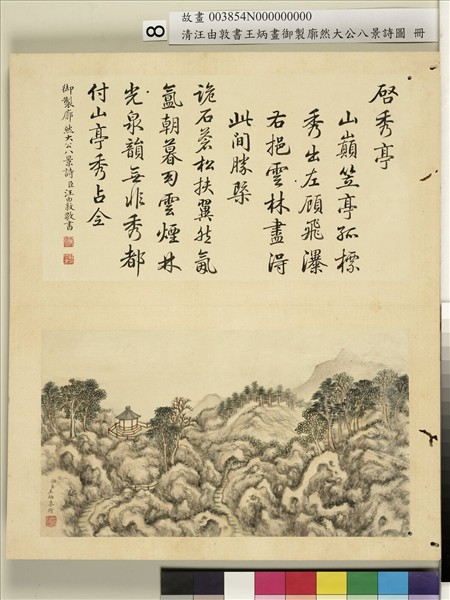 故畫 003854N000000000
清汪由敦書王炳畫御製廓然大公八景詩圖 冊
8
啓秀亭
山巔笠亭孤標
秀出左顧飛瀑
右挹雲林盡得
此間勝槩
詭石蒼松扶翼然氤
氳朝暮雲煙林
光泉韻無非秀都
付山亭秀占全
御製廓然大公八景詩 臣汪由敦敬書
臣王炳恭繪